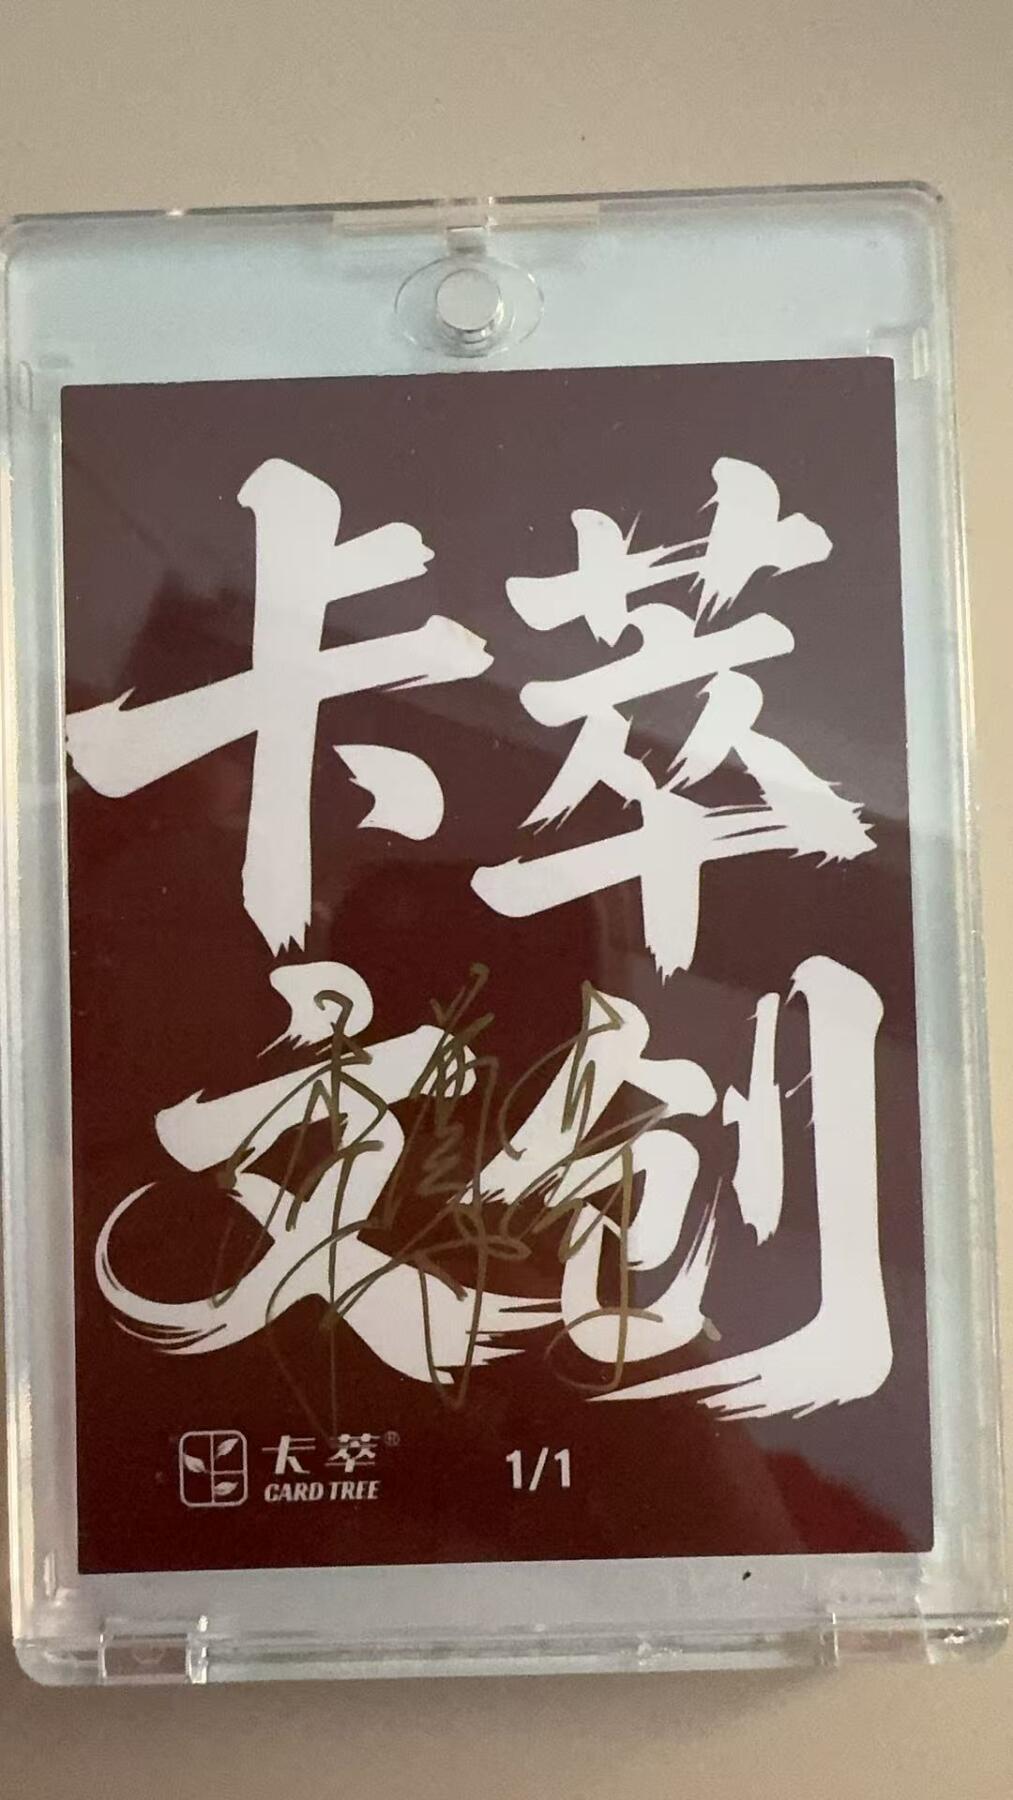 卡萃
文创
卡萃®
CARD TREE
1/1